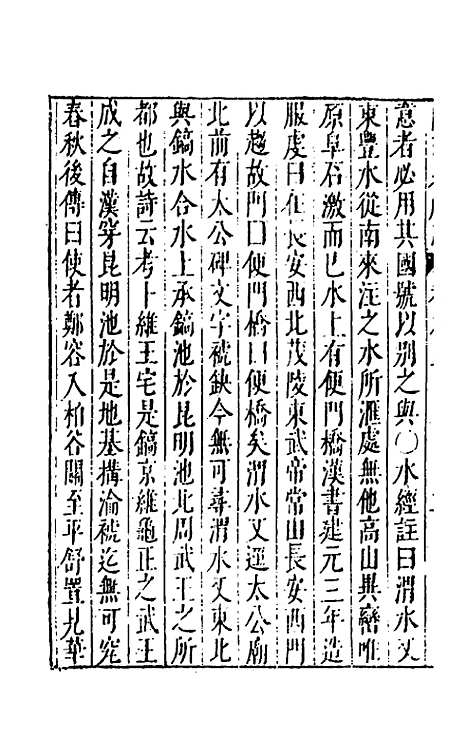 意者必用其國號以別之與〇水經註曰渭水又
東豐水從南來注之水所滙處無他高山異巒唯
原阜石激而已水上有便門橋漢書建元三年造
服虔曰在長安西北茂陵東武帝常由長安西門
以趨故門曰便門橋曰便橋矣渭水又逕太公廟
北前有太公碑文字褫缺今無可尋渭水又東北
與鎬水合水上承鎬池於昆明池北周武王之所
都也故詩云考卜維王宅是鎬京維龜正之武王
成之自漢穿昆明池於是地基構淪褫迄無可究
春秋後傳曰使者鄭容入柏谷關至平舒置見華